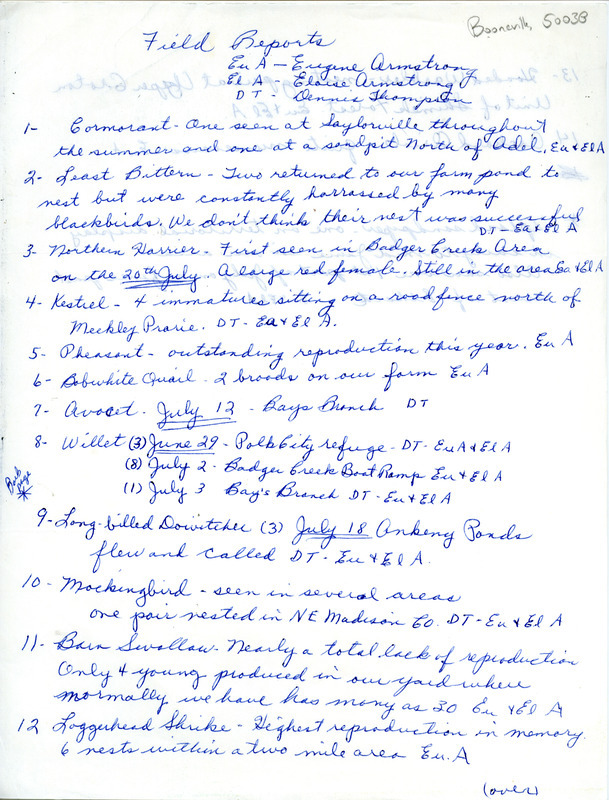 Booneville, 50038
Field Reports
Eu A - Eugene Armstrong
El A - Eloise Armstrong
DT - Dennis Thompson
1- Cormorant - One seen at Saylorville throughout
the summer and one at a sandpit North of Adel, Eu & El A
2- Least Bittern - Two returned to our farm pond to
nest but were constantly harrassed by many
blackbirds. We don't think their nest was successful
DT - Eu & El A
3- Northern Harrier - First seen in Badger Creek Area
on the 20th July. A large red female. Still in the area Eu & El A
4- Kestrel - 4 immatures sitting on a road fence north of
Meekley Prarie. DT - Eu & El A.
5- Pheasant - outstanding reproduction this year. Eu A
6- Bobwhite Quail - 2 broods on our farm Eu A
7- Avocet - July 12 - Bays Branch DT
8- Willet (3) June 29 - Polk City refuge - DT - Eu A & El A
(8) July 2 - Badger Creek Boat Ramp Eu & El A
Back page *
(1) July 3 Bay's Branch DT - Eu & El A
9- Long-billed Dowitcher (3) July 18 Ankeny Ponds
flew and called DT - Eu & El A.
10- Mockingbird - seen in several areas
one pair nested in NE Madison Co. DT - Eu & El A
11- Barn Swallow - Nearly a total lack of reproduction
Only 4 young produced in our yard where
normally we have has many as 30 Eu & El A
12 Loggerhead Shrike - Highest reproduction in memory.
6 nests within a two mile area Eu. A
(over)